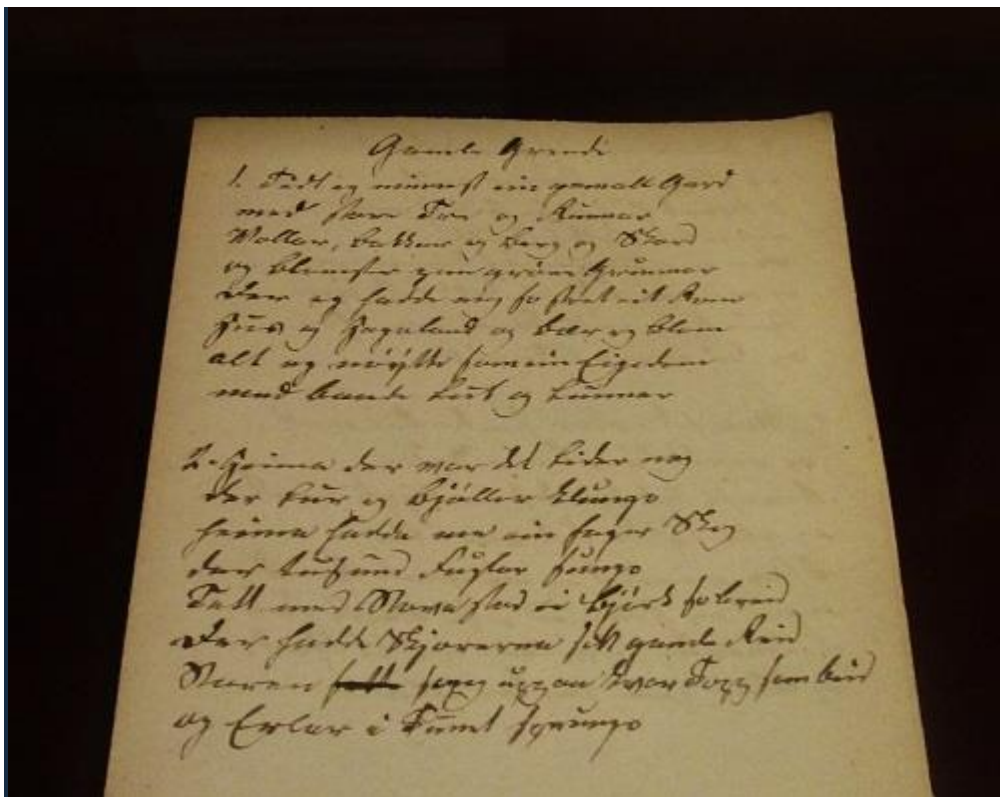 Gamle Grendi
1. Tidt eg minnest ein gamall Gard
med store Tre og Runnar
Vollar, Bakkar og Berg og Skard
og Blomster paa grøne Grunnar
Der eg hadde meg so stort eit Rom
Hus og Hagaland og Bær og Blom
alt eg nøytte som ein Eigedom
med baade Lut og Lunnar
2. Heima der var det Lider nog
der Lur og Bjøller klungo
heima hadde me ein fager Skog
der tusund Fuglar sungo
Tett med Stova stod ei Bjørk so breid
Der hadde Skjorerna sitt gamle Reid
Staren song uppaa kvar Topp som beid
og Erlor i Tunet sprungo